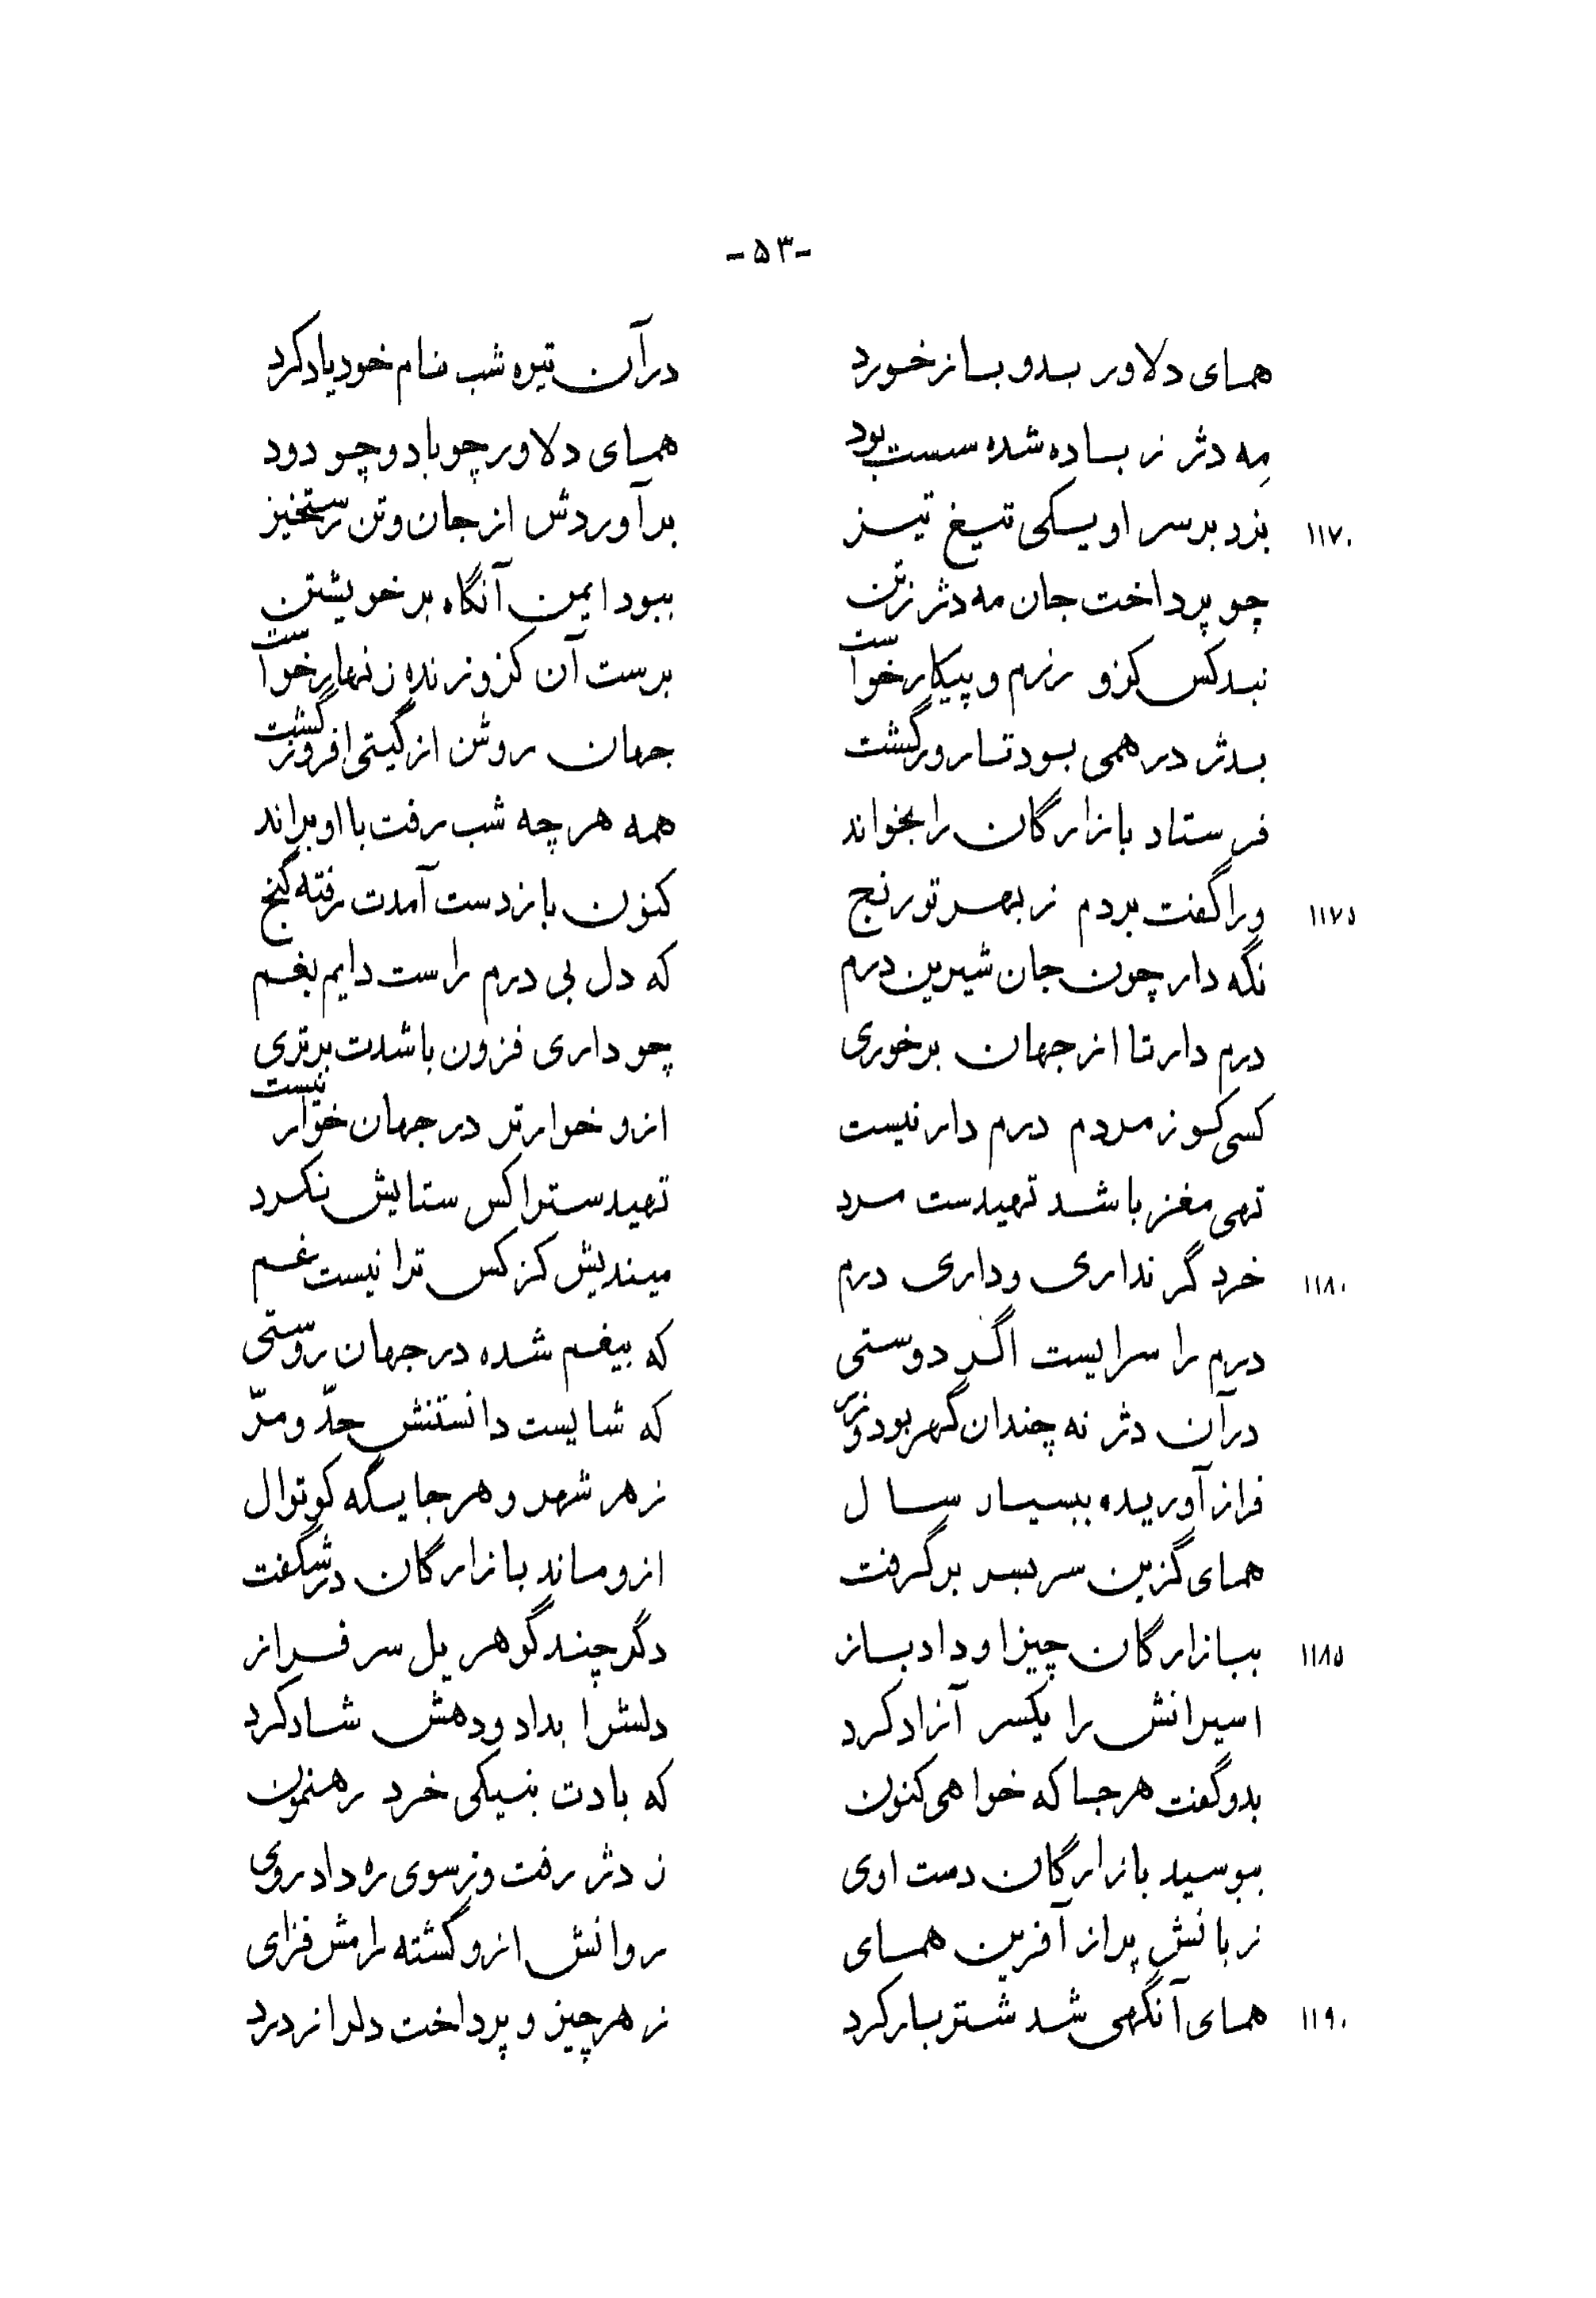 -۵۳-
همای دلاور بدو باز خورد در آن تیره شب نام خود یاد کرد
مِه دژ ز باده شده سست بود همای دلاور چو باد و چو دود
۱۱۷۰ بزد بر سر او یکی تیغ تیز برآوردش از جان و تن رستخیز
چو پرداخت جان مه دژ ز تن ببود ایمن آنگاه بر خویشتن
نبد کس کزو رزم و پیکار خواست برست آن کزو زنده زنهار خواست
بدژ در همی بود تا روز گشت جهان روشن از گیتی افروز گشت
فرستاد بازارگان را بخواند همه هر چه شب رفت با او براند
۱۱۷۵ ورا گفت بردم ز بهر تو رنج کنون باز دست آمدت رفته گنج
نگه دار چون جان شیرین درم که دل بی درم راست دایم بغم
درم دار تا از جهان برخوری چو داری فزون باشدت برتری
کسی کو ز مردم درم دار نیست ازو خوارتر در جهان خوار نیست
تهی مغز باشد تهیدست مرد تهیدسترا کس ستایش نکرد
۱۱۸۰ خرد گر نداری و داری درم میندیش کز کس ترا نیست غم
درم را سرایست اگر دوستی که بیغم شده در جهان روستی
در آن دژ نه چندان گهر بود و زر که شایست دانستنش حدّ و مرّ
فراز آوریده ببسیار سال ز هر شهر و هر جایگه کوتوال
همای گزین سربسر برگرفت ازو ماند بازارگان در شگفت
۱۱۸۵ ببازارگان چیز او داد باز دگر چند گوهر یل سرفراز
اسیرانش را یکسر آزاد کرد دلشرا بداد و دهش شاد کرد
بدو گفت هر جا که خواهی کنون که بادت بنیکی خرد رهنمون
ببوسید بازارگان دست اوی ز دژ رفت وز سوی ره داد روی
زبانش پر از آفرین همای روانش ازو گشته رامش فزای
۱۱۹۰ همای آنگهی شد شتر بار کرد ز هر چیز و پرداخت دلرا ز درد